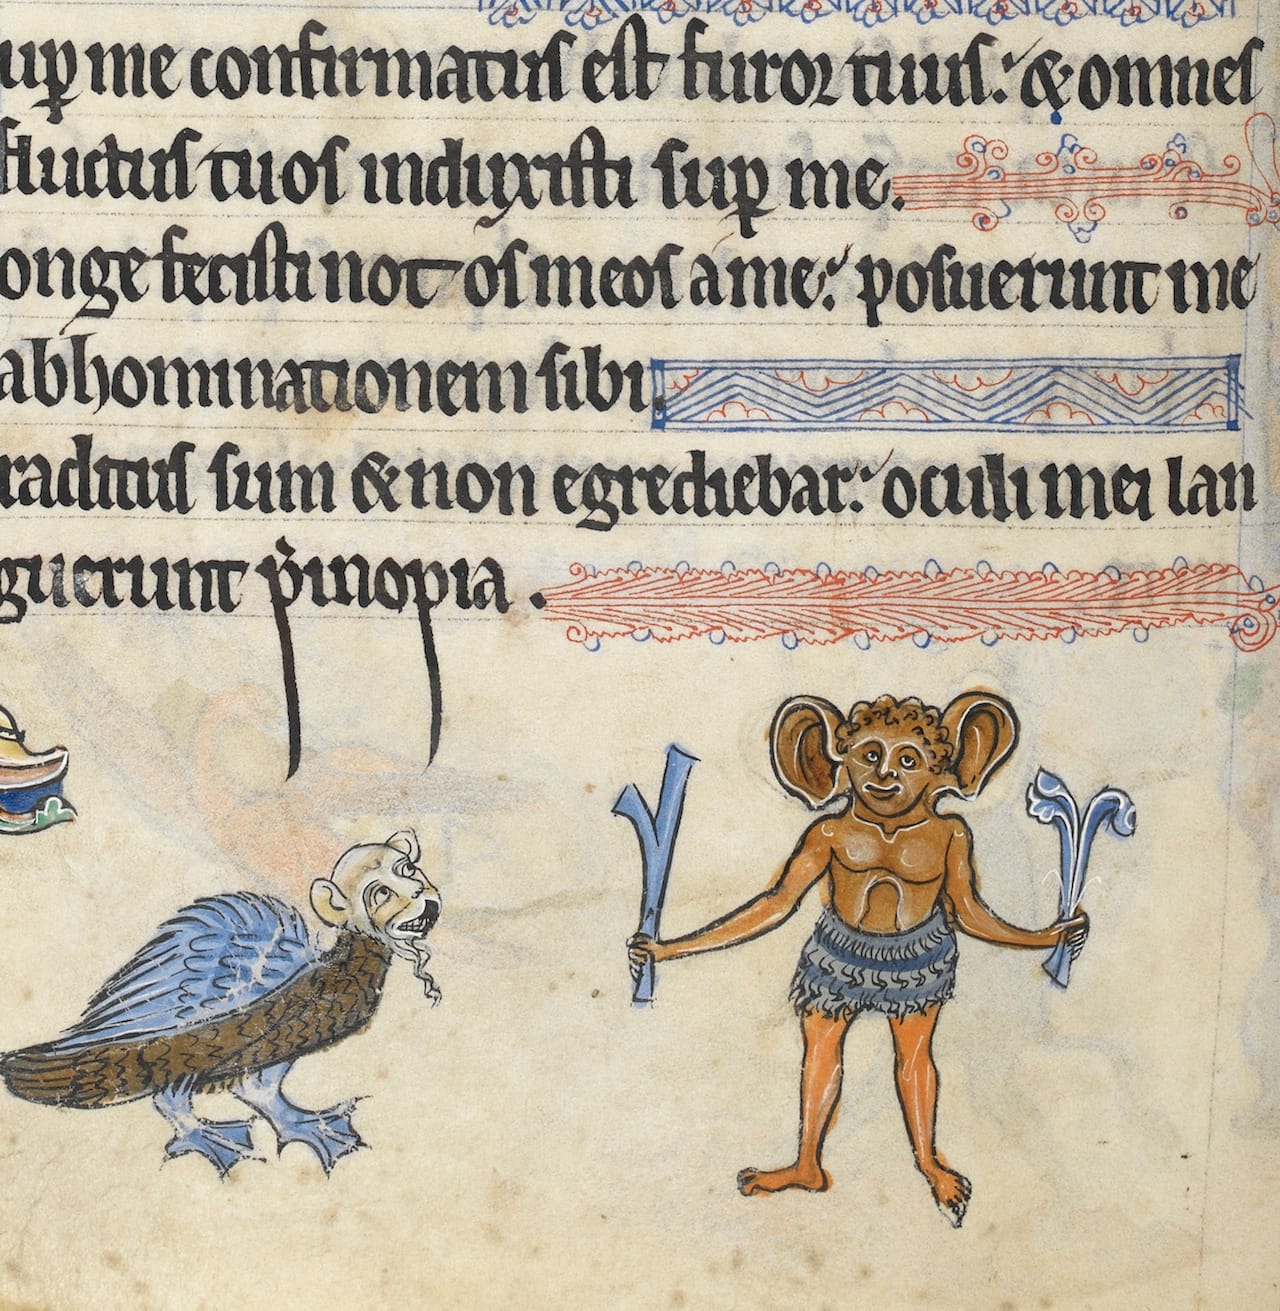 sup me confirmatus est furor tuus: & omnes
fluctus tuos induxisti sup me.
onge fecisti not os meos a me: posuerunt me
abhominationem sibi
raditus sum & non egrediebar: oculi mei lan
guerunt p̄ inopia.